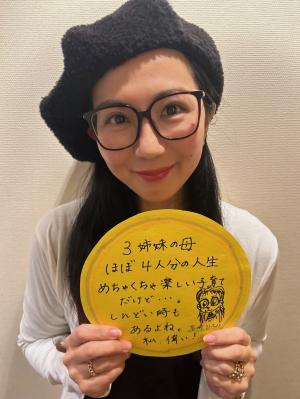 3姉妹の母
ほぼ4人分の人生
めちゃくちゃ楽しい子育て
だけど…。
しんどい時も
あるよね。
私、偉い!